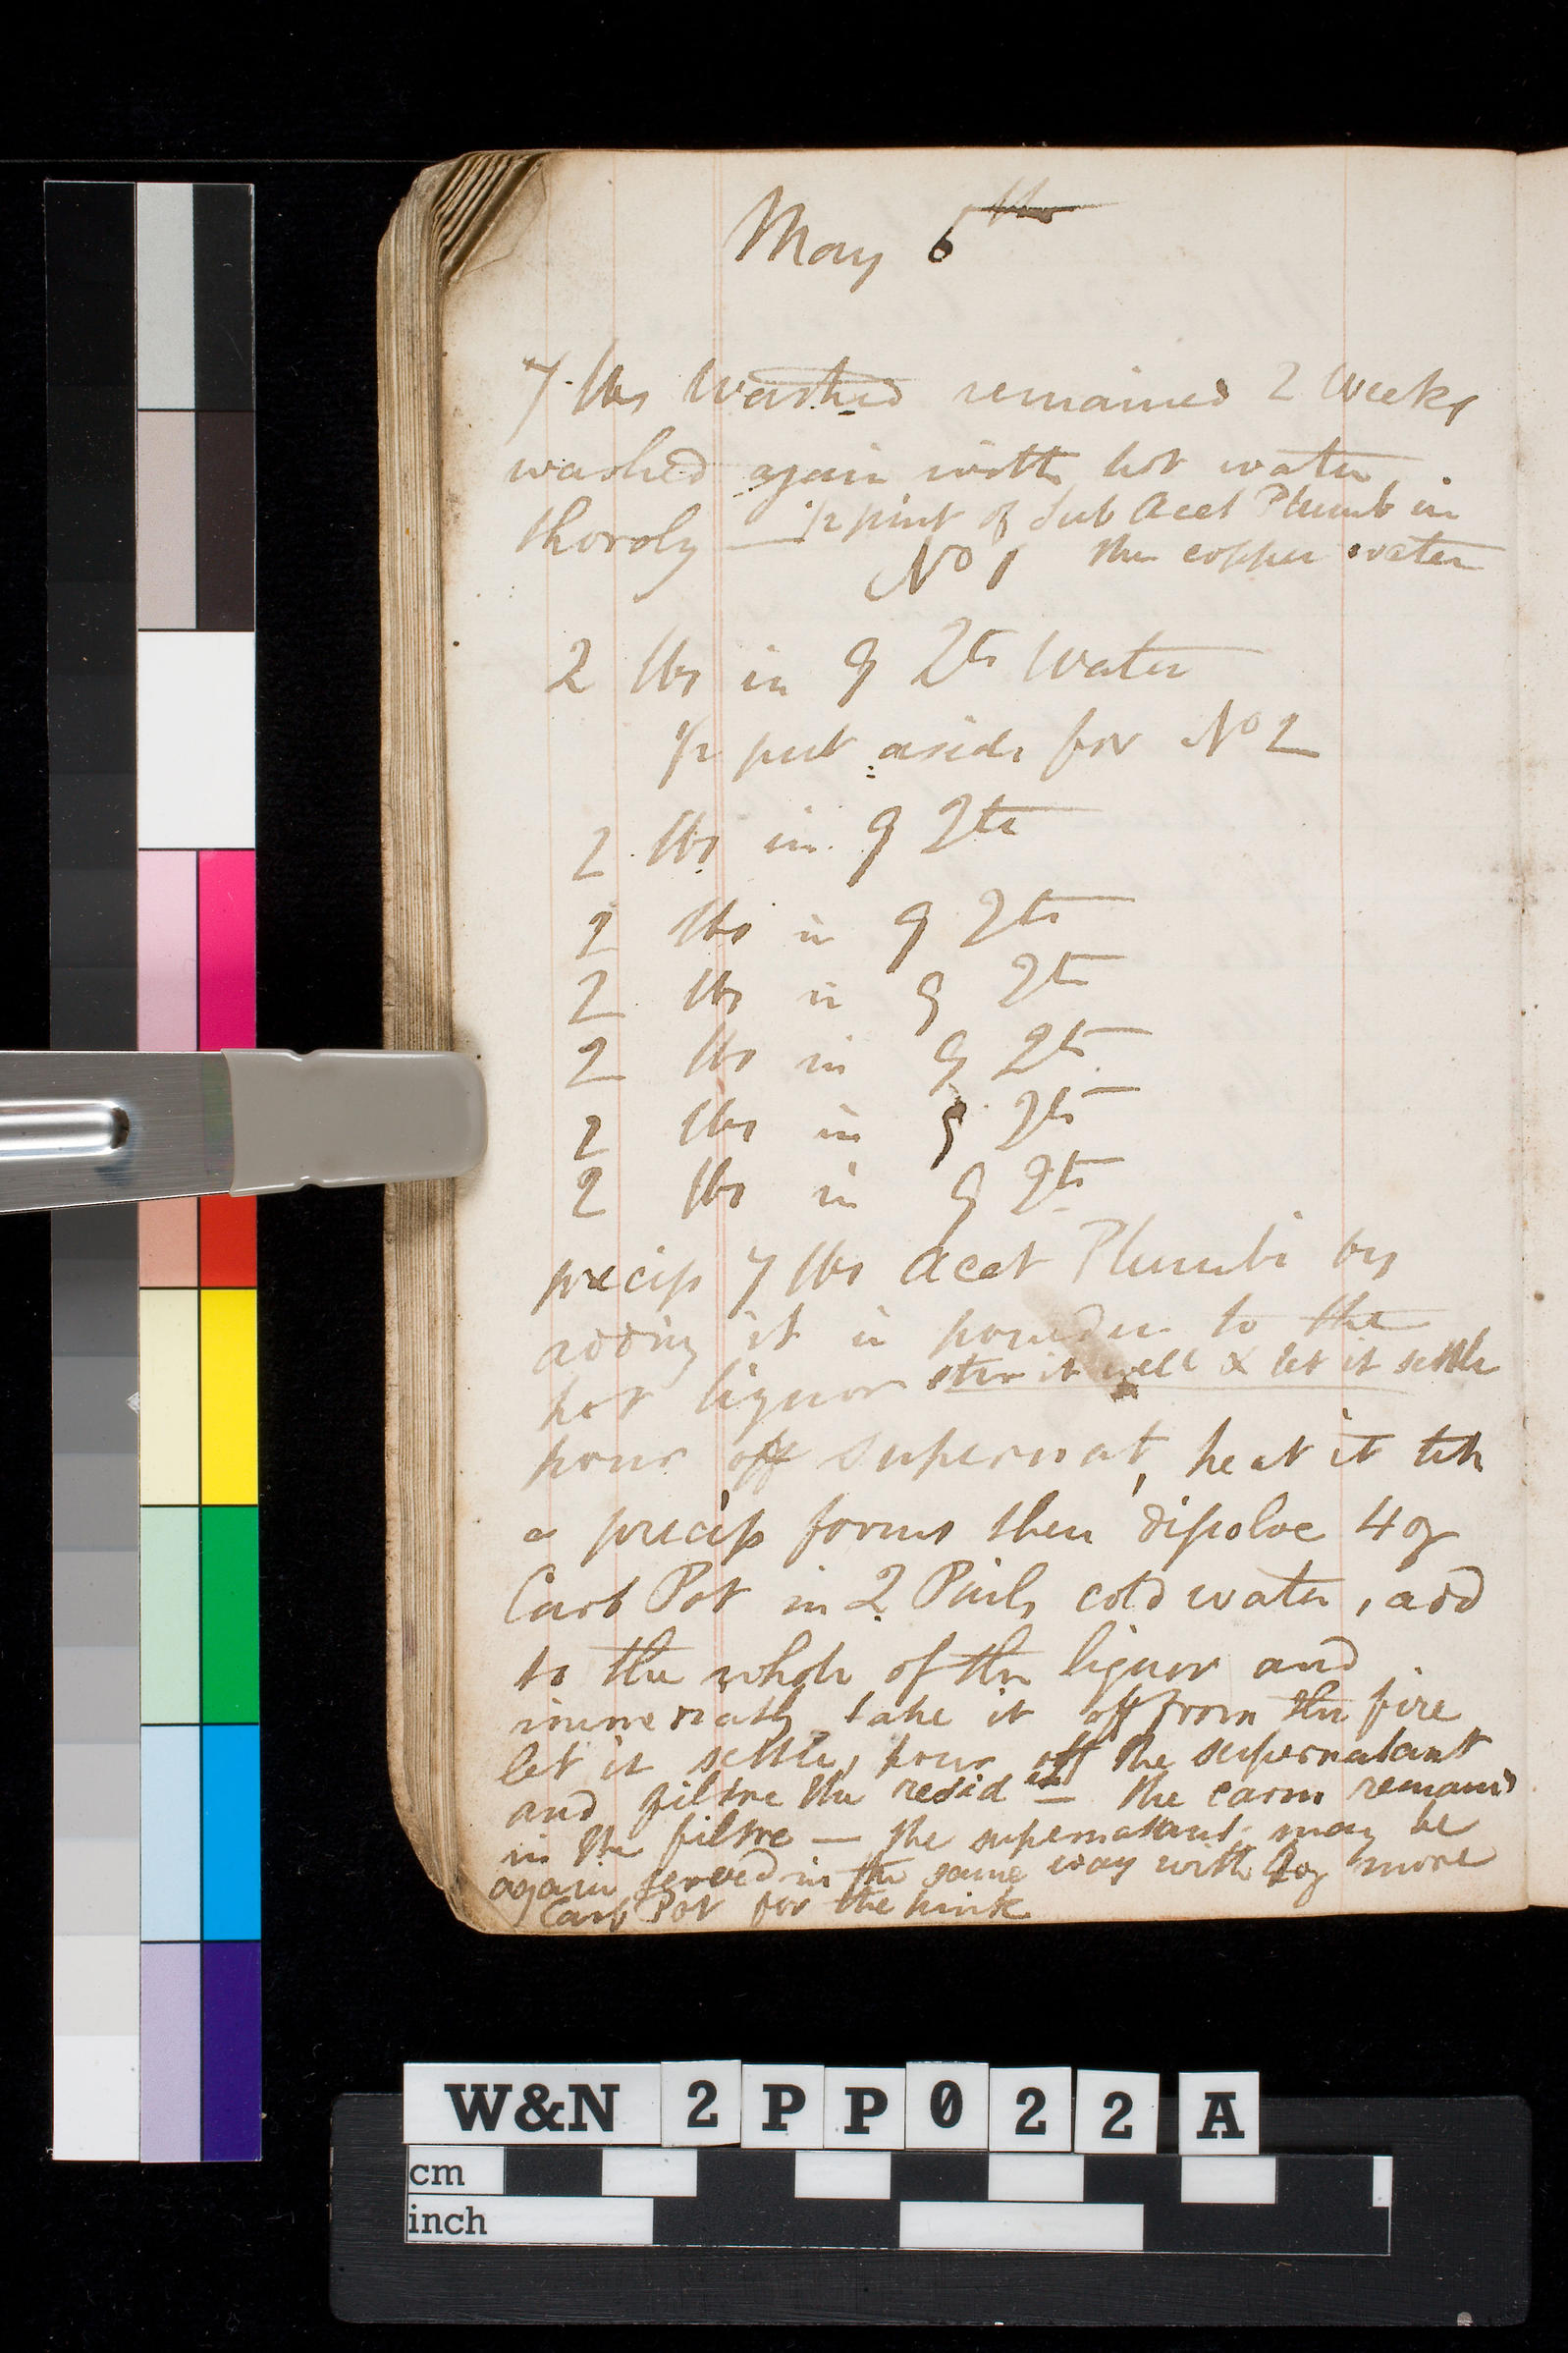 May 6th
7 lbs washed remained 2 weeks
washed again with hot water
thoroly — 1/2 pint of Sub Acet Plumb in
No 1 the copper water
2 lbs in 9 Qts Water
1/2 put aside for No 2
2 lbs in 9 Qts
2 lbs in 9 Qts
2 lbs in 9 Qts
2 lbs in 9 Qts
2 lbs in 9 Qts
2 lbs in 9 Qts
precip 7 lbs Acet Plumbi by
adding it in powder to the
hot liquor stir it well & let it settle
pour off supernat, heat it till
a precip forms then dissolve 4 oz
Carb Pot in 2 Pails cold water, add
to the whole of the liquor and
immediately take it off from the fire
let it settle, pour off the supernatant
and filtre the resid um — the carm remains
in the filtre — the supernatant may be
again served in the same way with 2 oz more
Carb Pot for the pink
W&N 2PP022 A
cm
inch